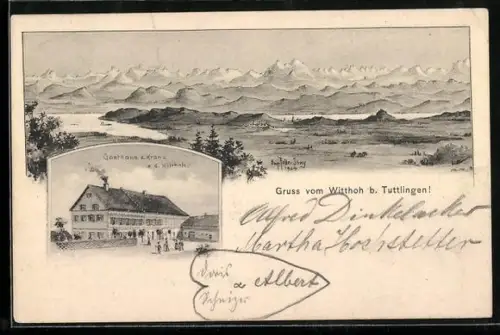 Gasthaus z. Krone
a. d. Witthoh.
Gruss vom Witthoh b. Tuttlingen!
Alfred Dinkelacker
Martha Hochstetter
Doris & Albert
Schwizer